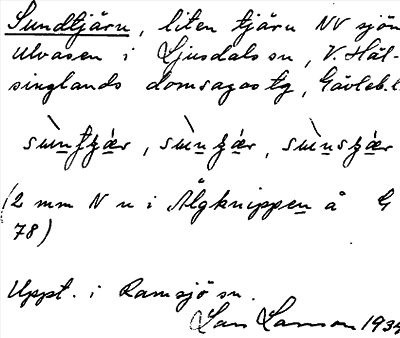 Sundtjärn, liten tjärn NV sjön
Ulvasen i Ljusdals sn, V. Häl-
singlands domsagas tg, Gävleb. l.
(2 mm N n i Älgknippen å G
78)
Uppt. i Ramsjö sn.
Lars Larsson 1934